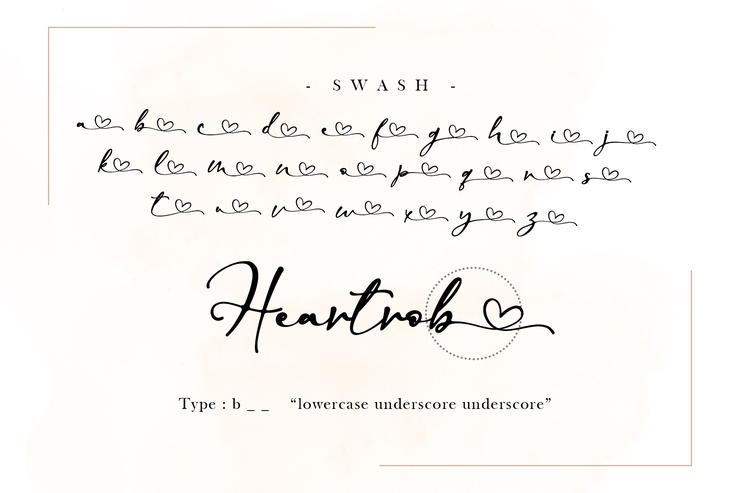 - SWASH -
a b c d e f g h i j
k l m n o p q r s
t u v w x y z
Heartrob
Type : b _ _ “lowercase underscore underscore”